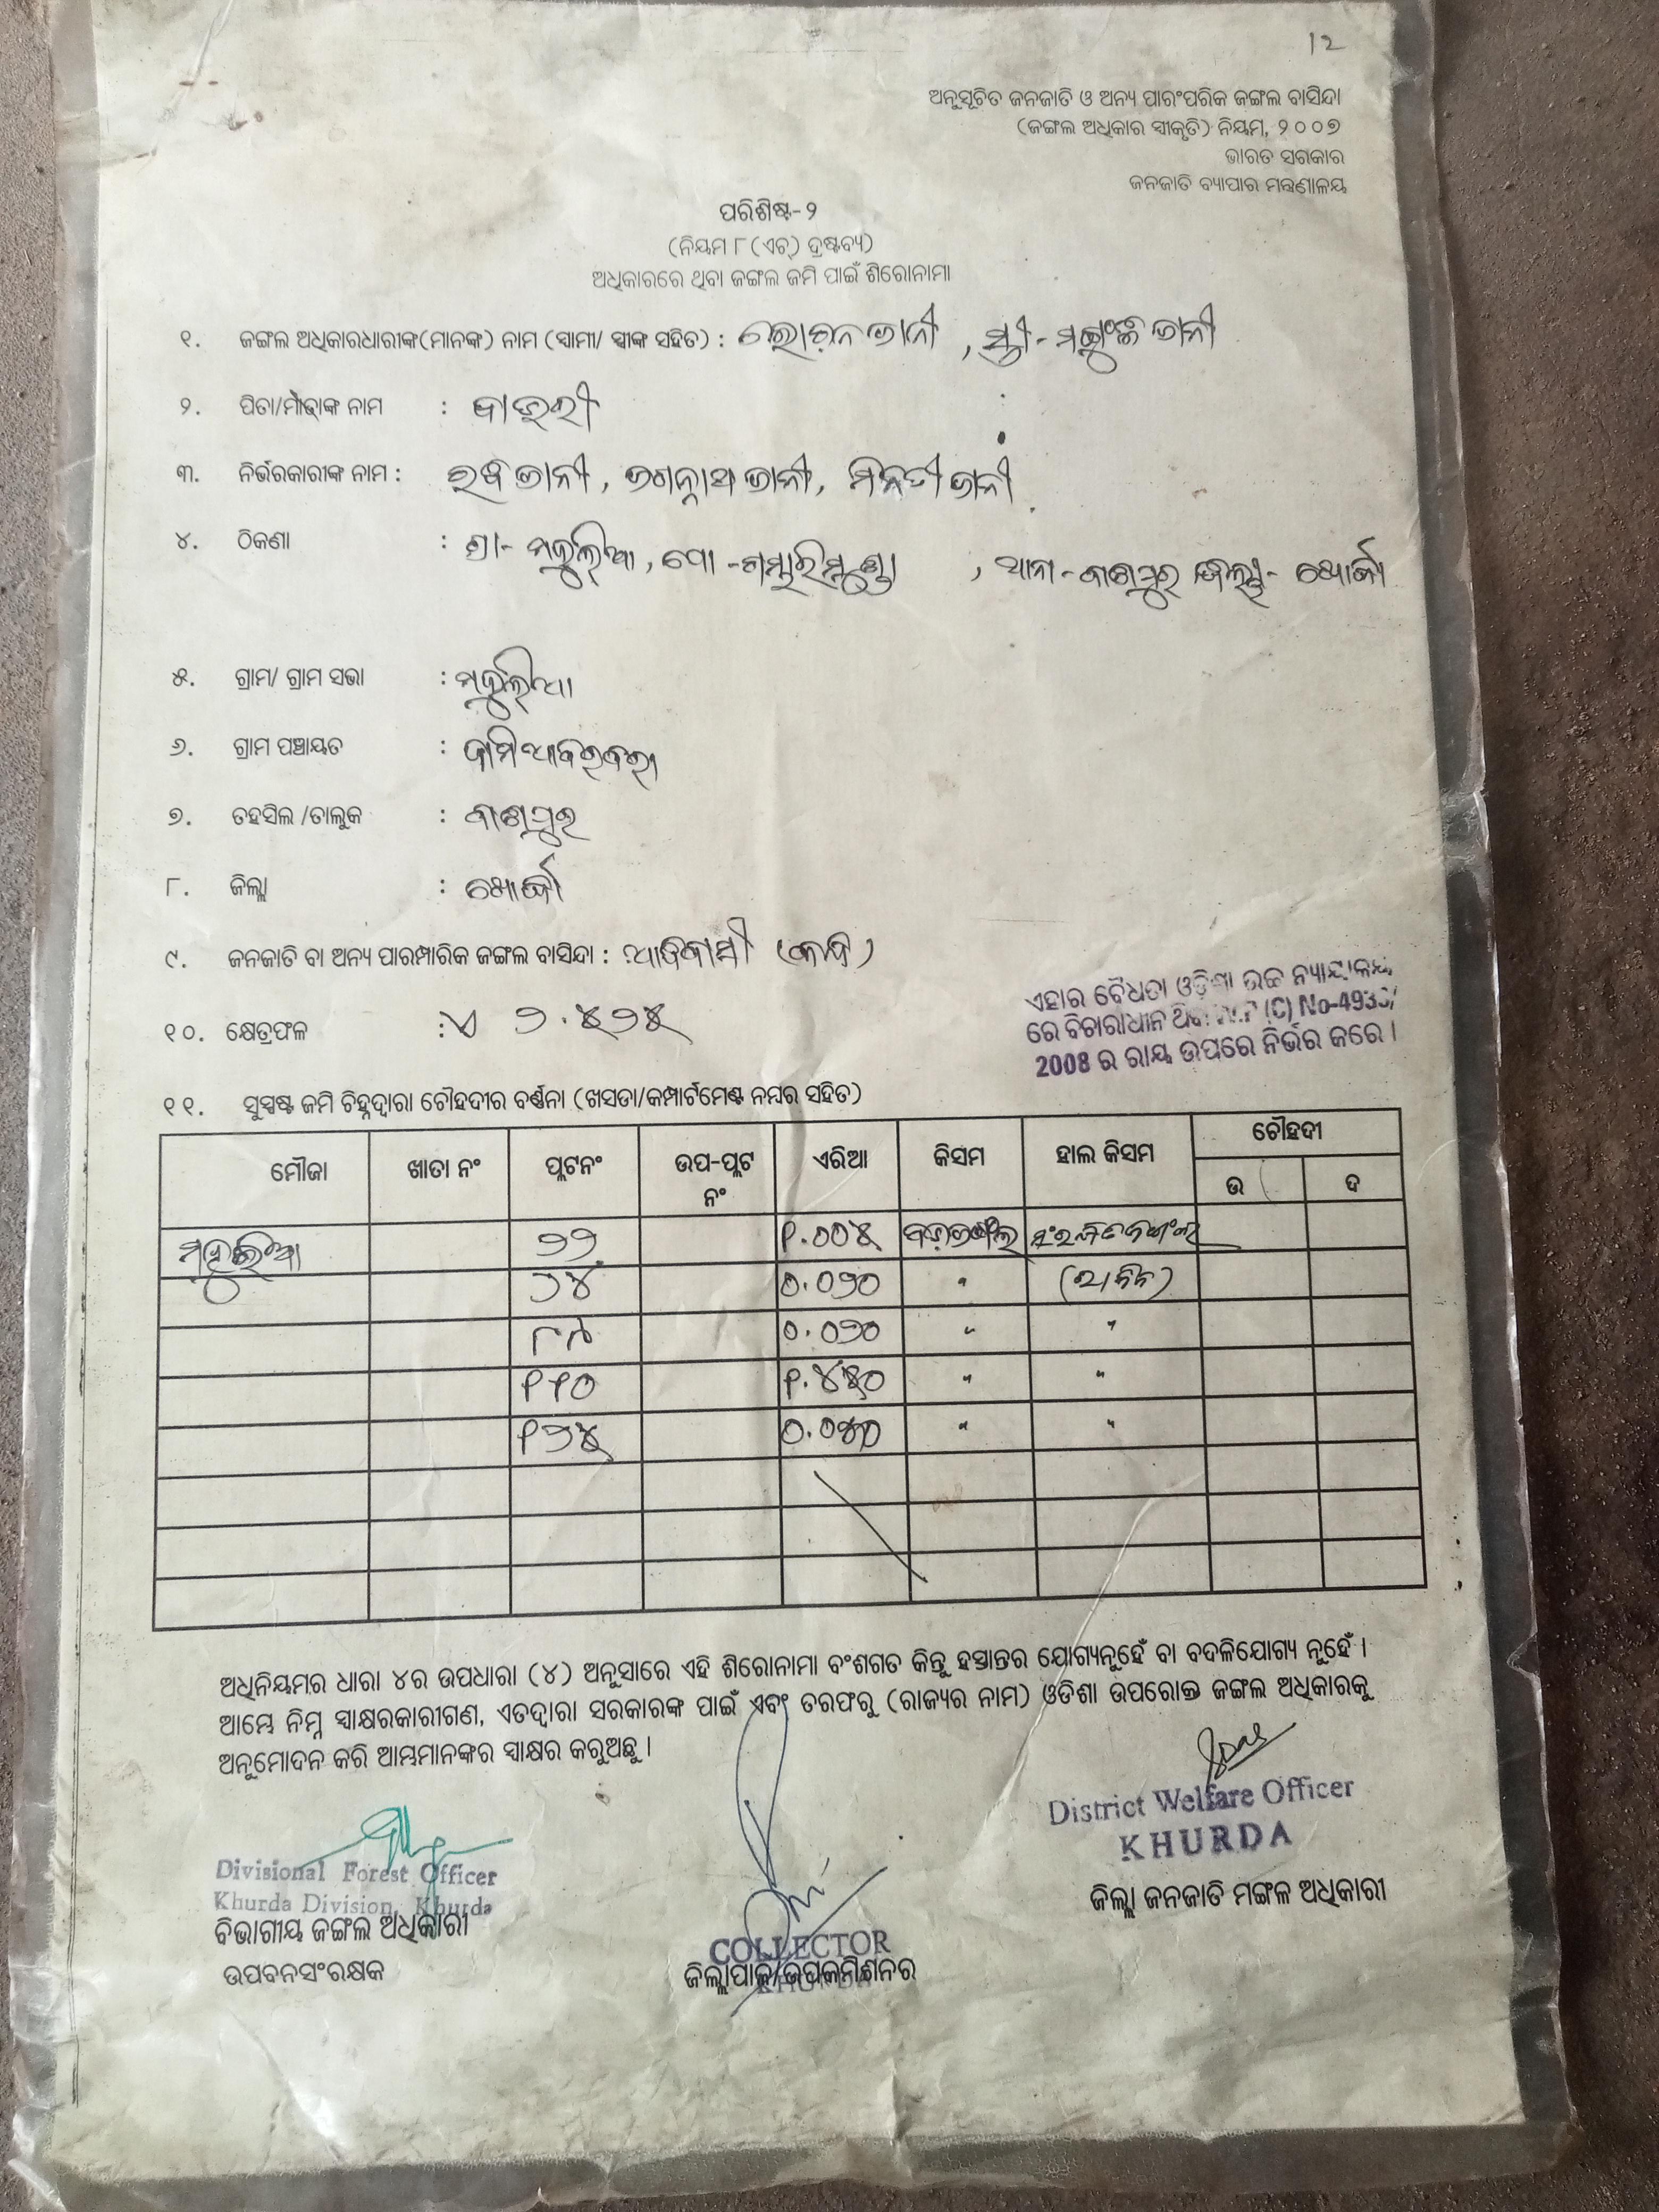 12
ଅନୁସୂଚିତ ଜନଜାତି ଓ ଅନ୍ୟ ପାରଂପରିକ ଜଙ୍ଗଲ ବାସିନ୍ଦା
(ଜଙ୍ଗଲ ଅଧିକାର ସ୍ୱୀକୃତି) ନିୟମ, ୨୦୦୭
ଭାରତ ସରକାର
ଜନଜାତି ବ୍ୟାପାର ମନ୍ତ୍ରଣାଳୟ
ପରିଶିଷ୍ଟ-୨
(ନିୟମ ୮(ଏଚ୍) ଦ୍ରଷ୍ଟବ୍ୟ)
ଅଧିକାରରେ ଥିବା ଜଙ୍ଗଲ ଜମି ପାଇଁ ଶିରୋନାମା
୧. ଜଙ୍ଗଲ ଅଧିକାରଧାରୀଙ୍କ(ମାନଙ୍କ) ନାମ (ସ୍ୱାମୀ/ ସ୍ତ୍ରୀଙ୍କ ସହିତ) : ଜାନୀ , ସ୍ତ୍ରୀ - ଜାନୀ
୨. ପିତା/ମାତାଙ୍କ ନାମ :
୩. ନିର୍ଭରକାରୀଙ୍କ ନାମ : ଜାନୀ, ଜଗନ୍ନାଥ ଜାନୀ, ମିନତୀ ଜାନୀ
୪. ଠିକଣା : ଗ୍ରା- ମହୁଲିଆ, ପୋ -ଗମ୍ଭାରିମୁଣ୍ଡା , ଥାନା - ବାଣପୁର ଜିଲ୍ଲା - ଖୋର୍ଦ୍ଧା
୫. ଗ୍ରାମ/ ଗ୍ରାମ ସଭା : ମହୁଲିଆ
୬. ଗ୍ରାମ ପଞ୍ଚାୟତ :
୭. ତହସିଲ /ତାଲୁକ : ବାଣପୁର
୮. ଜିଲ୍ଲା : ଖୋର୍ଦ୍ଧା
୯. ଜନଜାତି ବା ଅନ୍ୟ ପାରମ୍ପାରିକ ଜଙ୍ଗଲ ବାସିନ୍ଦା : ଆଦିବାସୀ (କନ୍ଧ)
ଏହାର ବୈଧତା ଓଡ଼ିଶା ଉଚ୍ଚ ନ୍ୟାୟାଳୟ
ରେ ବିଚାରାଧୀନ ଥିବା (C) No-4933/
2008 ର ରାୟ ଉପରେ ନିର୍ଭର କରେ ।
୧୦. କ୍ଷେତ୍ରଫଳ : ଏ ୨.୫୨୫
୧୧. ସୁସ୍ପଷ୍ଟ ଜମି ଚିହ୍ନଦ୍ୱାରା ଚୌହଦୀର ବର୍ଣ୍ଣନା (ଖସଡା/କମ୍ପାର୍ଟମେଣ୍ଟ ନମ୍ବର ସହିତ)
ମୌଜା ଖାତା ନଂ ପ୍ଲଟନଂ ଉପ-ପ୍ଲଟ ନଂ ଏରିଆ କିସମ ହାଲ କିସମ ଚୌହଦୀ
ଉ ଦ
ମହୁଲିଆ ୨୨ ୧.୦୦୫
୨୪ ୦.୦୨୦ "
୮୯ ୦.୦୨୦ " "
୧୧୦ " "
୧୨୫ " "
ଅଧିନିୟମର ଧାରା ୪ର ଉପଧାରା (୪) ଅନୁସାରେ ଏହି ଶିରୋନାମା ବଂଶଗତ କିନ୍ତୁ ହସ୍ତାନ୍ତର ଯୋଗ୍ୟନୁହେଁ ବା ବଦଳିଯୋଗ୍ୟ ନୁହେଁ ।
ଆମ୍ଭେ ନିମ୍ନ ସ୍ୱାକ୍ଷରକାରୀଗଣ, ଏତଦ୍ୱାରା ସରକାରଙ୍କ ପାଇଁ ଏବଂ ତରଫରୁ (ରାଜ୍ୟର ନାମ) ଓଡିଶା ଉପରୋକ୍ତ ଜଙ୍ଗଲ ଅଧିକାରକୁ
ଅନୁମୋଦନ କରି ଆମ୍ଭମାନଙ୍କର ସ୍ୱାକ୍ଷର କରୁଅଛୁ ।
District Welfare Officer
KHURDA
ଜିଲ୍ଲା ଜନଜାତି ମଙ୍ଗଳ ଅଧିକାରୀ
Divisional Forest Officer
Khurda Division, Khurda
ବିଭାଗୀୟ ଜଙ୍ଗଲ ଅଧିକାରୀ
ଉପବନସଂରକ୍ଷକ
COLLECTOR
ଜିଲ୍ଲାପାଳ/ଉପକମିଶନର